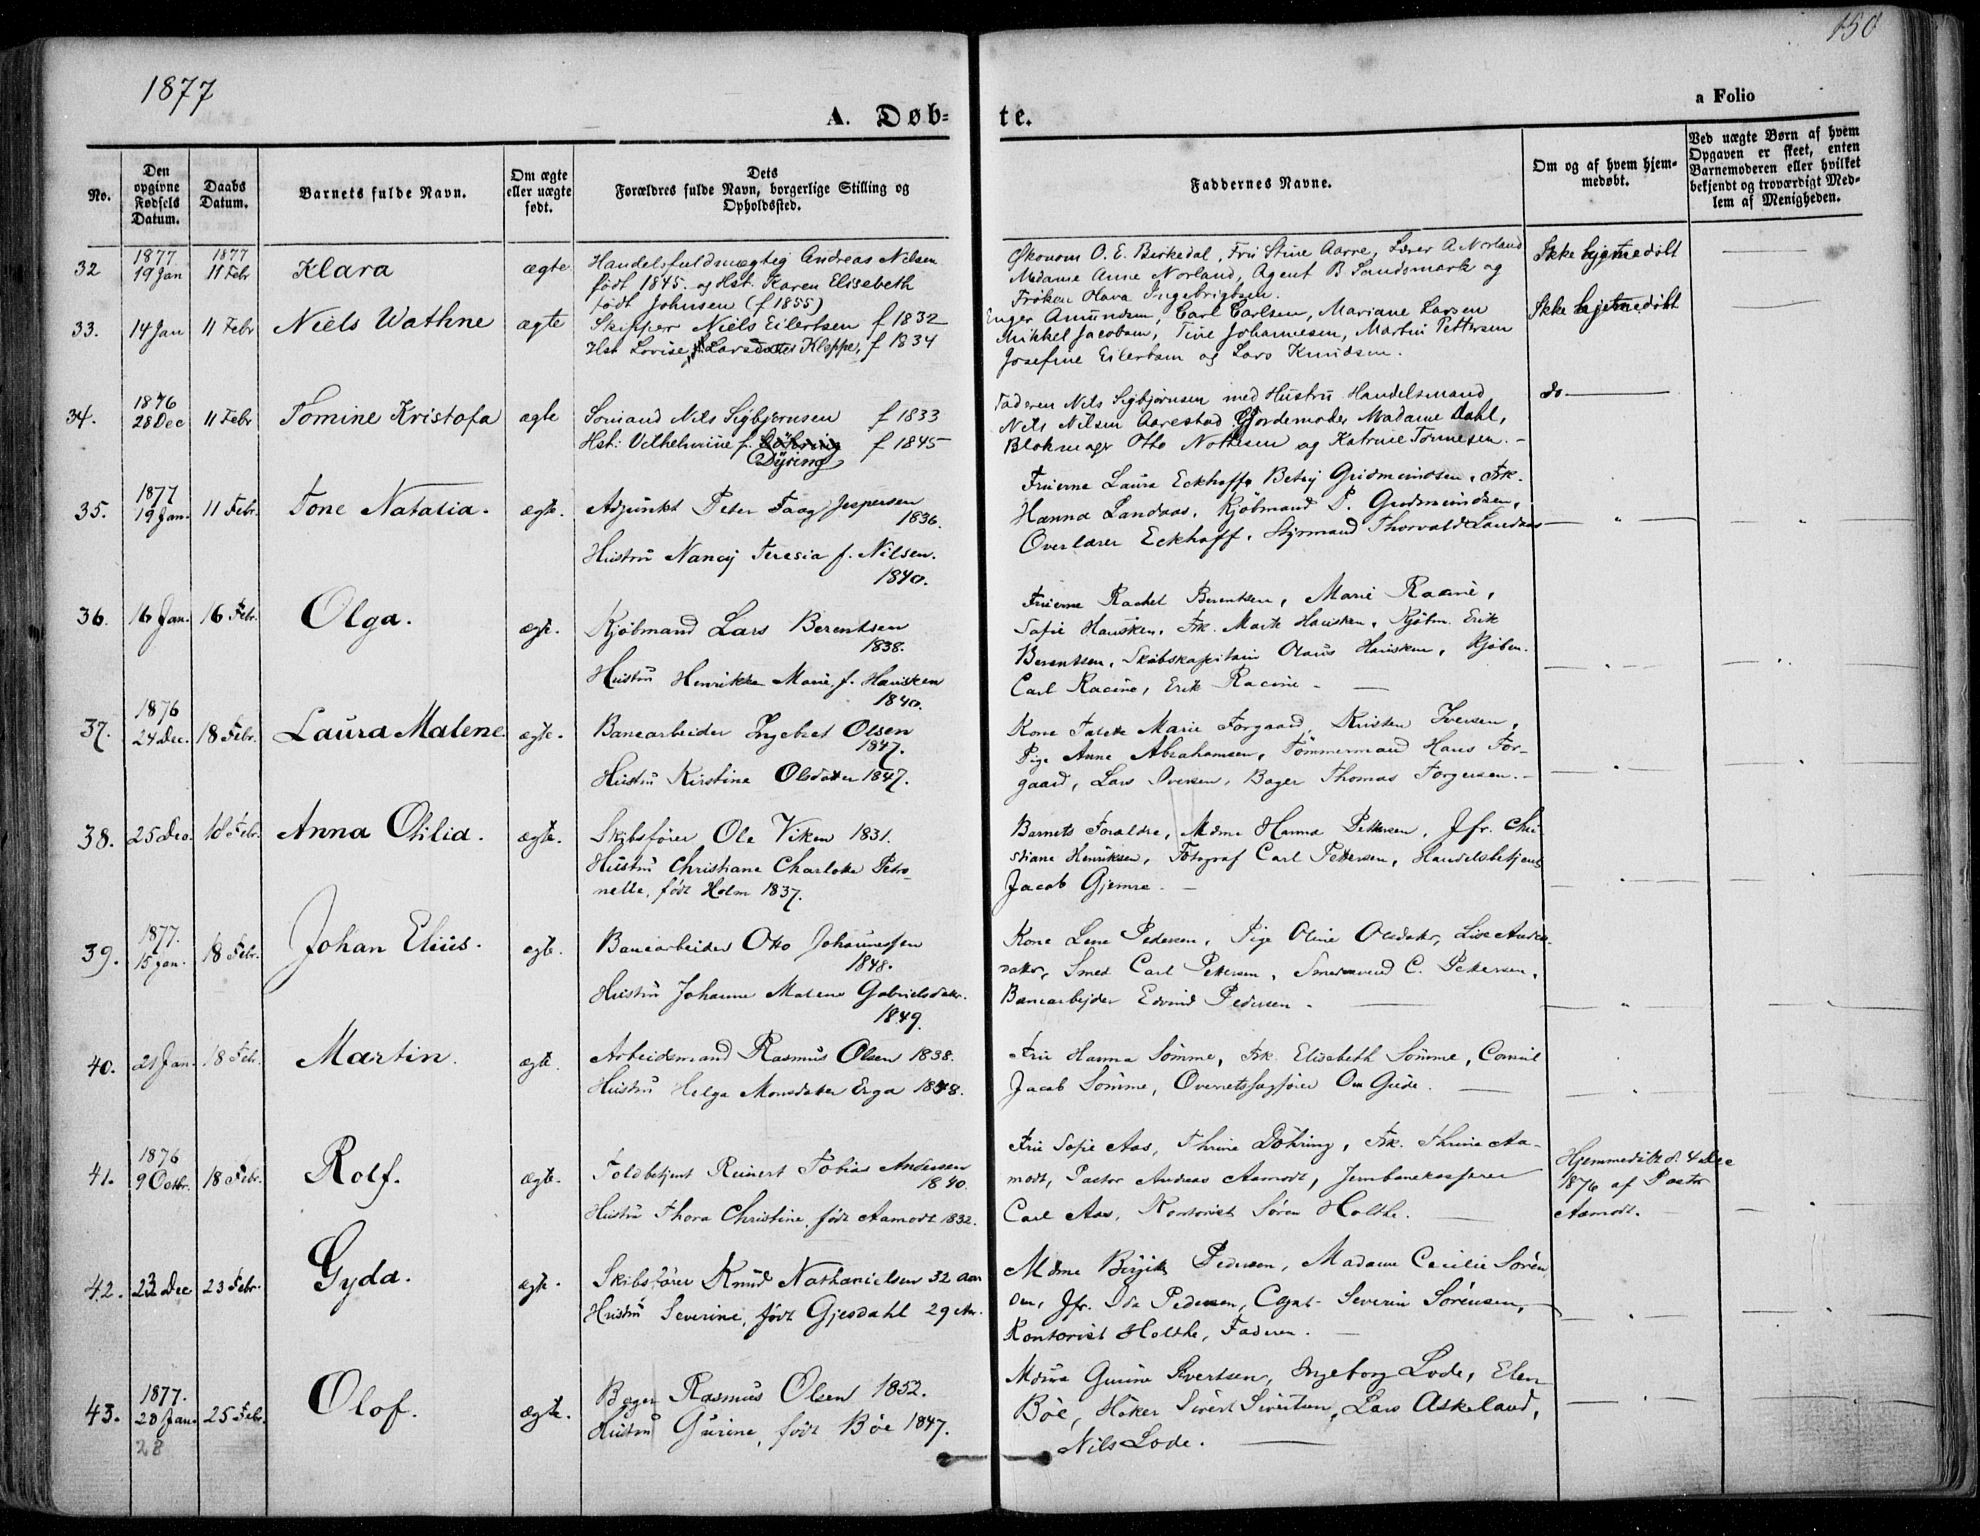 1877
150
A. Døb-
te.
a Folio
No.
Den opgivne Fødsels Datum.
Daabs Datum.
Barnets fulde Navn.
Om ægte eller uægte født.
Dets Forældres fulde Navn, borgerlige Stilling og Opholdssted.
Faddernes Navne.
Om og af hvem hjemmedøbt.
Ved uægte Børn af hvem Opgaven er skeet, enten Barnemoderen eller hvilket bekjendt og troværdigt Medlem af Menigheden.
32 1877 19 Jan 1877 11 Febr Klara ægte
Handelsfuldmægtig Andreas Nilsen
født 1845. og Hst. Karen Elisabeth
født Johnsen (f 1855)
Økonom O. E. Birkedal, Fru Stine Aarre, Lærer A Norland
Madame Anne Norland, Agent B Sandsmark og
Frøken Olava Ingebrigtsen.
Ikke hjemmedøbt
33. 14 Jan 11 Febr Niels Wathne ægte
Skipper Niels Eilertsen f 1832
Hst Lovise Larsdatter Kleppe, f 1834
Enger Amundsen, Carl Carlsen, Mariane Larsen
Mikkel Jacobsen, Tine Johannesen, Martin Pettersen
Josefine Eilertsen og Lars Knudsen.
Ikke hjemmedøbt
34. 1876 28 Dec 11 Febr Tomine Kristofa ægte
Sømand Nils Sigbjørnsen f 1833
Hst: Vilhelmine f. Dÿring f 1845
Faderen Nils Sigbjørnsen med Hustru Handelsmand
Nils Nilsen Aarestad Gjordemoder Madame Dahl,
Blokmager Otto Nothesen og Katrine Tønnesen. -
do
35. 1877 19 Jan. 11 Febr. Tone Natalia. ægte.
Adjunkt Peter Faag Jespersen
1836.
Hustru Nancy Teresia f. Nilsen.
1840.
Fruerne Laura Eckhoff, Betsy Gudmundsen, Frk.
Hanna Landaas, Kjøbmand P. Gudmundsen,
Overlærer Eckhoff, Styrmand Thorvald Landaas
36. 16 Jan. 16 Febr. Olga. ægte.
Kjøbmand Lars Berentsen
1838.
Hustru Henrikke Marie, f. Hausken
1840.
Fruerne Rachel Berentsen, Marie Racine,
Sofie Hausken, Frk. Marte Hausken, Kjøbm. Erik
Berentsen, Skibskapitain Olaus Hausken, Kjøbm.
Carl Racine, Erik Racine -
37. 1876 24 Dec. 18 Febr. Laura Malene ægte.
Banearbeider Ingebret Olsen
1847.
Hustru Kirstine Olsdatter 1847.
Kone Marie Torgaard, Kristen Iversen,
Pige Anne Abrahamsen, Tømmermand Hans Tor-
gaard, Lars Iversen, Bager Thomas Torgersen. -
38. 25 Dec. 18 Febr. Anna Otilia. ægte.
Skibsfører Ole Viken 1831.
Hustru Christiane Charlotte Petro-
nelle, født Holm 1837.
Barnets Forældre, Mdme Hanna Pettersen, Jfr. Chri
stiane Henriksen, Fotograf Carl Pettersen, Handelsbetjent
Jacob Gjemre. -
39. 1877. 15 Jan. 18 Febr. Johan Elius. ægte.
Banearbeider Otto Johannessen
1848.
Hustru Johanne Malene Gabrielsdatter.
1849.
Kone Lene Pedersen, Pige Oline Olsdatter, Lise Anders
datter, Smed Carl Pettersen, Smedsvend C. Pettersen,
Banearbejder Edvind Pedersen -
40. 21 Jan. 18 Febr. Martin. ægte.
Arbeidsmand Rasmus Olsen 1838.
Hustru Helga Monsdatter Erga 1848.
Fru Hanna Sømme, Frk. Elisabeth Sømme, Consul
Jacob Sømme, Overretssagfører Om Gude.
41. 1876 9 Octbr. 18 Febr. Rolf. ægte.
Toldbetjent Reinert Tobias Andersen
1840.
Hustru Thora Christine, født Aamodt 1832.
Fru Sofie Aas, Thrine Døhring, Frk. Thrine Aa-
modt, Pastor Andreas Aamodt, Jernbanekasserer
Carl Aas, Kontorist Søren Holthe.
Hjemmedøbt d. 4 Dec
1876 af Pastor
Aamodt.
42. 23 Dec 23 Febr. Gyda. ægte.
Skibsfører Knud Nathanielsen 32 Aar
Hustru Severine, født Gjesdahl 29 Ar.
Mdme Birgitte Pedersen, Madame Cecilie Søren
sen, Jfr. Ida Pedersen, Capt. Severin Sørensen,
Kontorist Holthe, Faderen.
43. 1877. 28 Jan. 25 Febr. Olof. ægte.
28
Bager Rasmus Olsen 1852.
Hustru Gurine, født Bøe 1847.
Mdme Gurine Sivertsen, Ingeborg Lode, Elen
Bøe, Høker Sivert Sivertsen, Lars Askeland,
Nils Lode.